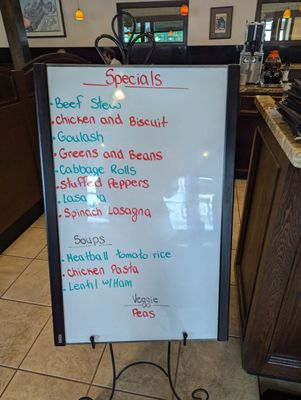 Specials
• Beef Stew
• Chicken and Biscuit
• Goulash
• Greens and Beans
• Cabbage Rolls
• Stuffed Peppers
• Lasagna
• Spinach Lasagna
Soups
• Meatball tomato rice
• Chicken Pasta
• Lentil w/Ham
Veggie
Peas